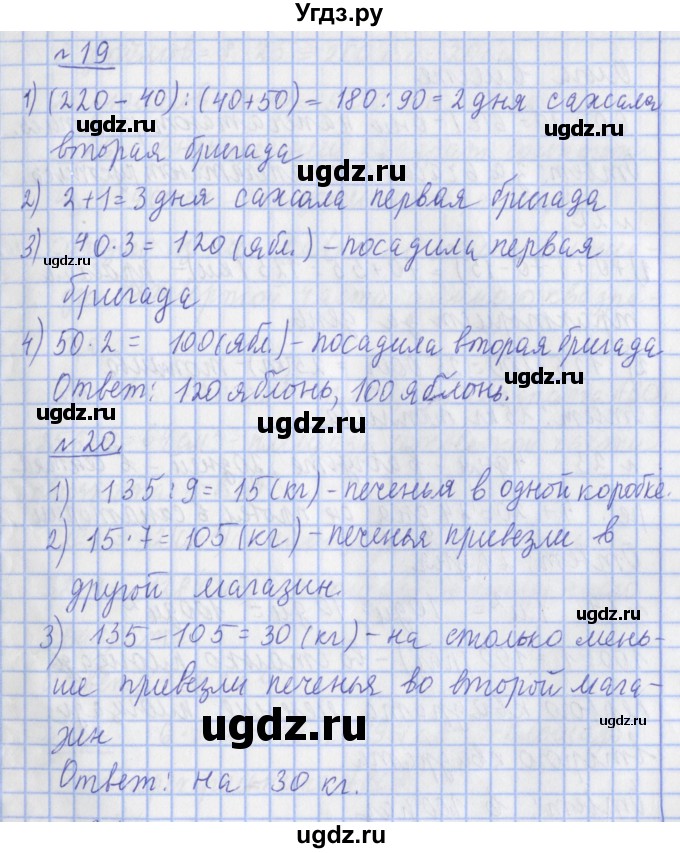 Угдз.ru
№ 19
1) (220 - 40) : (40+50) = 180 : 90 = 2 дня сажала
вторая бригада
2) 2+1=3 дня сажала первая бригада
3) 40·3 = 120 (ябл.) - посадила первая
бригада
4) 50·2 = 100 (ябл.) - посадила вторая бригада
Ответ: 120 яблонь, 100 яблонь.
№ 20.
1) 135 : 9 = 15 (кг) - печенья в одной коробке.
2) 15·7 = 105 (кг) - печенья привезли в
другой магазин.
3) 135 - 105 = 30 (кг) - на столько мень-
ше привезли печенья во второй мага-
зин
Ответ: на 30 кг.
ugdz.ru